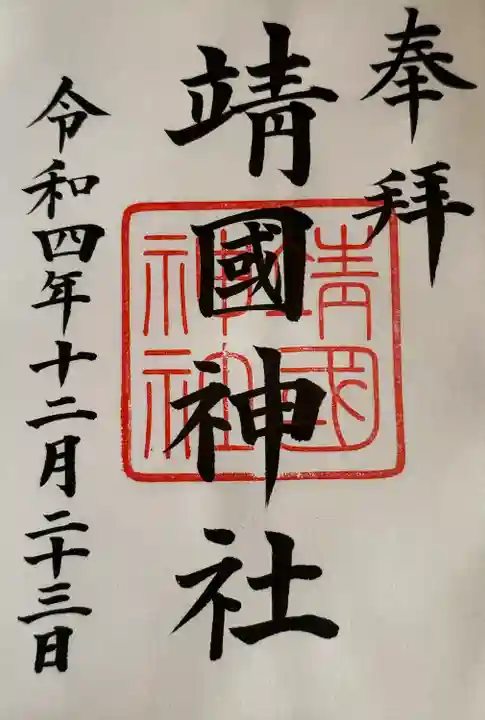 奉拝
靖國神社
靖国神社
令和四年十二月二十三日